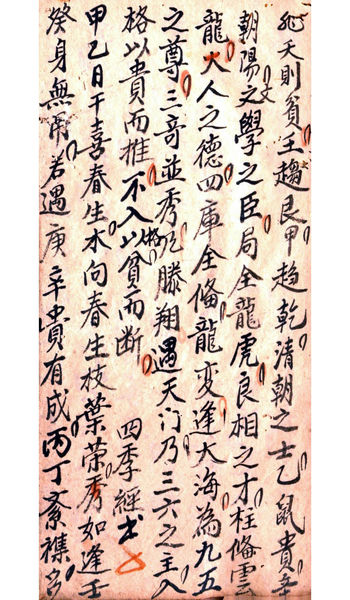 天則貧壬趨艮甲趋乾清朝之士乙鼠貴辛
朝陽文學之臣局全龍虎良相之才柱俻雲
龍大人之德四庫全俻龍變逢大海為九五
之尊三奇並秀滕翔遇天门乃三六之主入
格以貴而推不入格以貧而断 四季經
甲乙日干喜春生木向春生枝葉荣秀如逢壬
癸身無若遇庚辛貴有成丙丁紊襍